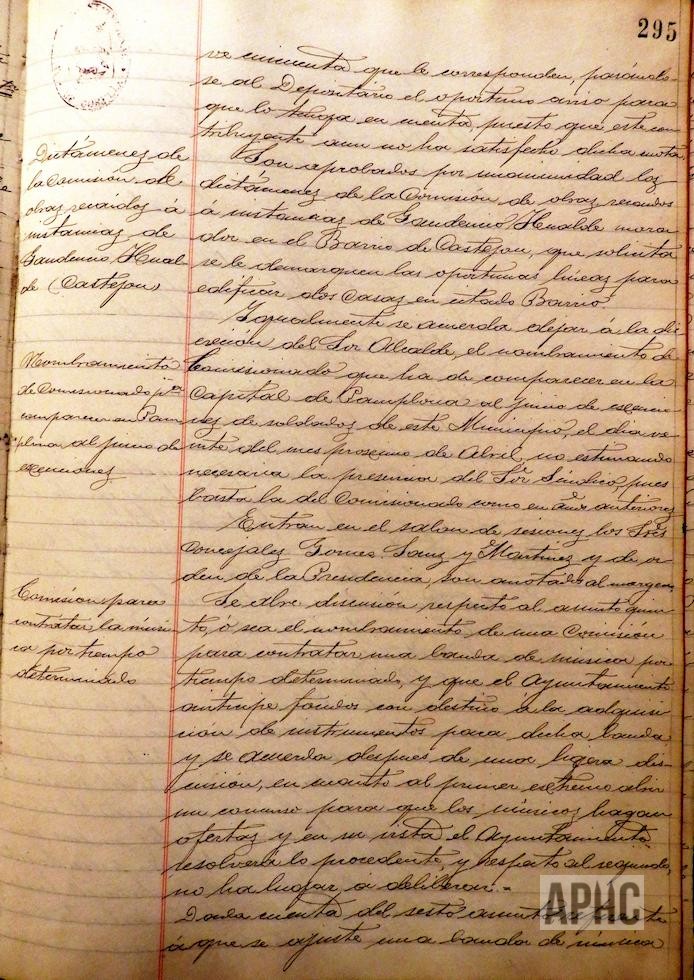 295
ve cincuenta que le corresponden, pasándo-
se al Depositario el oportuno aviso para
que lo tenga en cuenta, puesto que este con
tribuyente aun no ha satisfecho dicha cuota.
Dictámenez de
la Comisión de
obras recaidos á
instancias de
Gaudencio Hual
de (Castejon)
Son aprobados por unanimidad los
dictámenez de la Comisión de obras recaidos
á instancias de Gaudencio Hualde mora
dor en el Barrio de Castejon, que solicita
se le demarquen las oportunas lineas para
edificar dos Casas en citado Barrio
Nombramiento
de Comisionado pª
comparecer en Pam
plona al juicio de
exenciones
Igualmente se acuerda dejar á la dis
creción del Sor Alcalde, el nombramiento de
Comisionado que ha de comparecer en la
Capital de Pamplona al juicio de exencio
nez de soldados de este Municipio, el dia ve
inte del mes proximo de Abril, no estimando
necesaria la presencia del Sor Sindico, pues
basta la del Comisionado como en años anteriores
Entran en el salon de sesiones los Sres
Concejales Gomez Sanz y Martinez y de or
den de la Presidencia son anotados al margen.
Comisión para
contratar la músi
ca por tiempo
determinado
Se abre discusión respecto al asunto quin
to, ó sea el nombramiento de una Comisión
para contratar una banda de música por
tiempo determinado, y que el Ayuntamiento
anticipe fondos con destino á la adquisi
ción de instrumentos para dicha banda
y se acuerda despues de una ligera dis
cusión, en cuanto al primer extremo abrir
un concurso para que los músicos hagan
ofertas y en su vista el Ayuntamiento
resolverá lo procedente, y respecto al segundo,
no ha lugar á deliberar.-
Dada cuenta del sesto asunto referente
á que se ajuste una banda de música
APHC